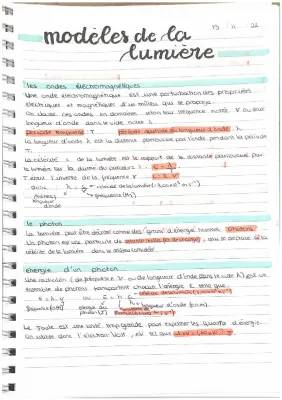 19 11 22
modèles de la
lumière
les ondes électromagnétiques
Une onde électromagnétique est une perturbation des propriétés
électriques et magnétiques d'un milieu qui se propage.
On classe ces ondes en domaines selon leur fréquence notée V ou leur
longueur d'onde dans le vide notée
période temporelle T période spatiale ou longueur d'onde λ
La longueur d'onde λ est la distance parcourue par l'onde pendant la période
T.
La célérité c de la lumière est le rapport de la distance parcourue par
la lumière sur la durée du parcours :
T étant l'inverse de la fréquence V : c = λ.V
le photon
La lumière peut être décrite comme des "grains" d'énergie nommés photons.
Un photon est une particule de
célérité de la lumière dans le
énergie d'un photon
Une radiation (de fréquence V ou de longueur d'onde dans le vide λ) est un
ensemble de photons transportant chacun l'énergie E telle que
E = h.V ou E = h.
Le Joule est une unité trop grande pour exprimer les quanta d'énergie.
On utilise donc l'électron-Volt, eV tel que